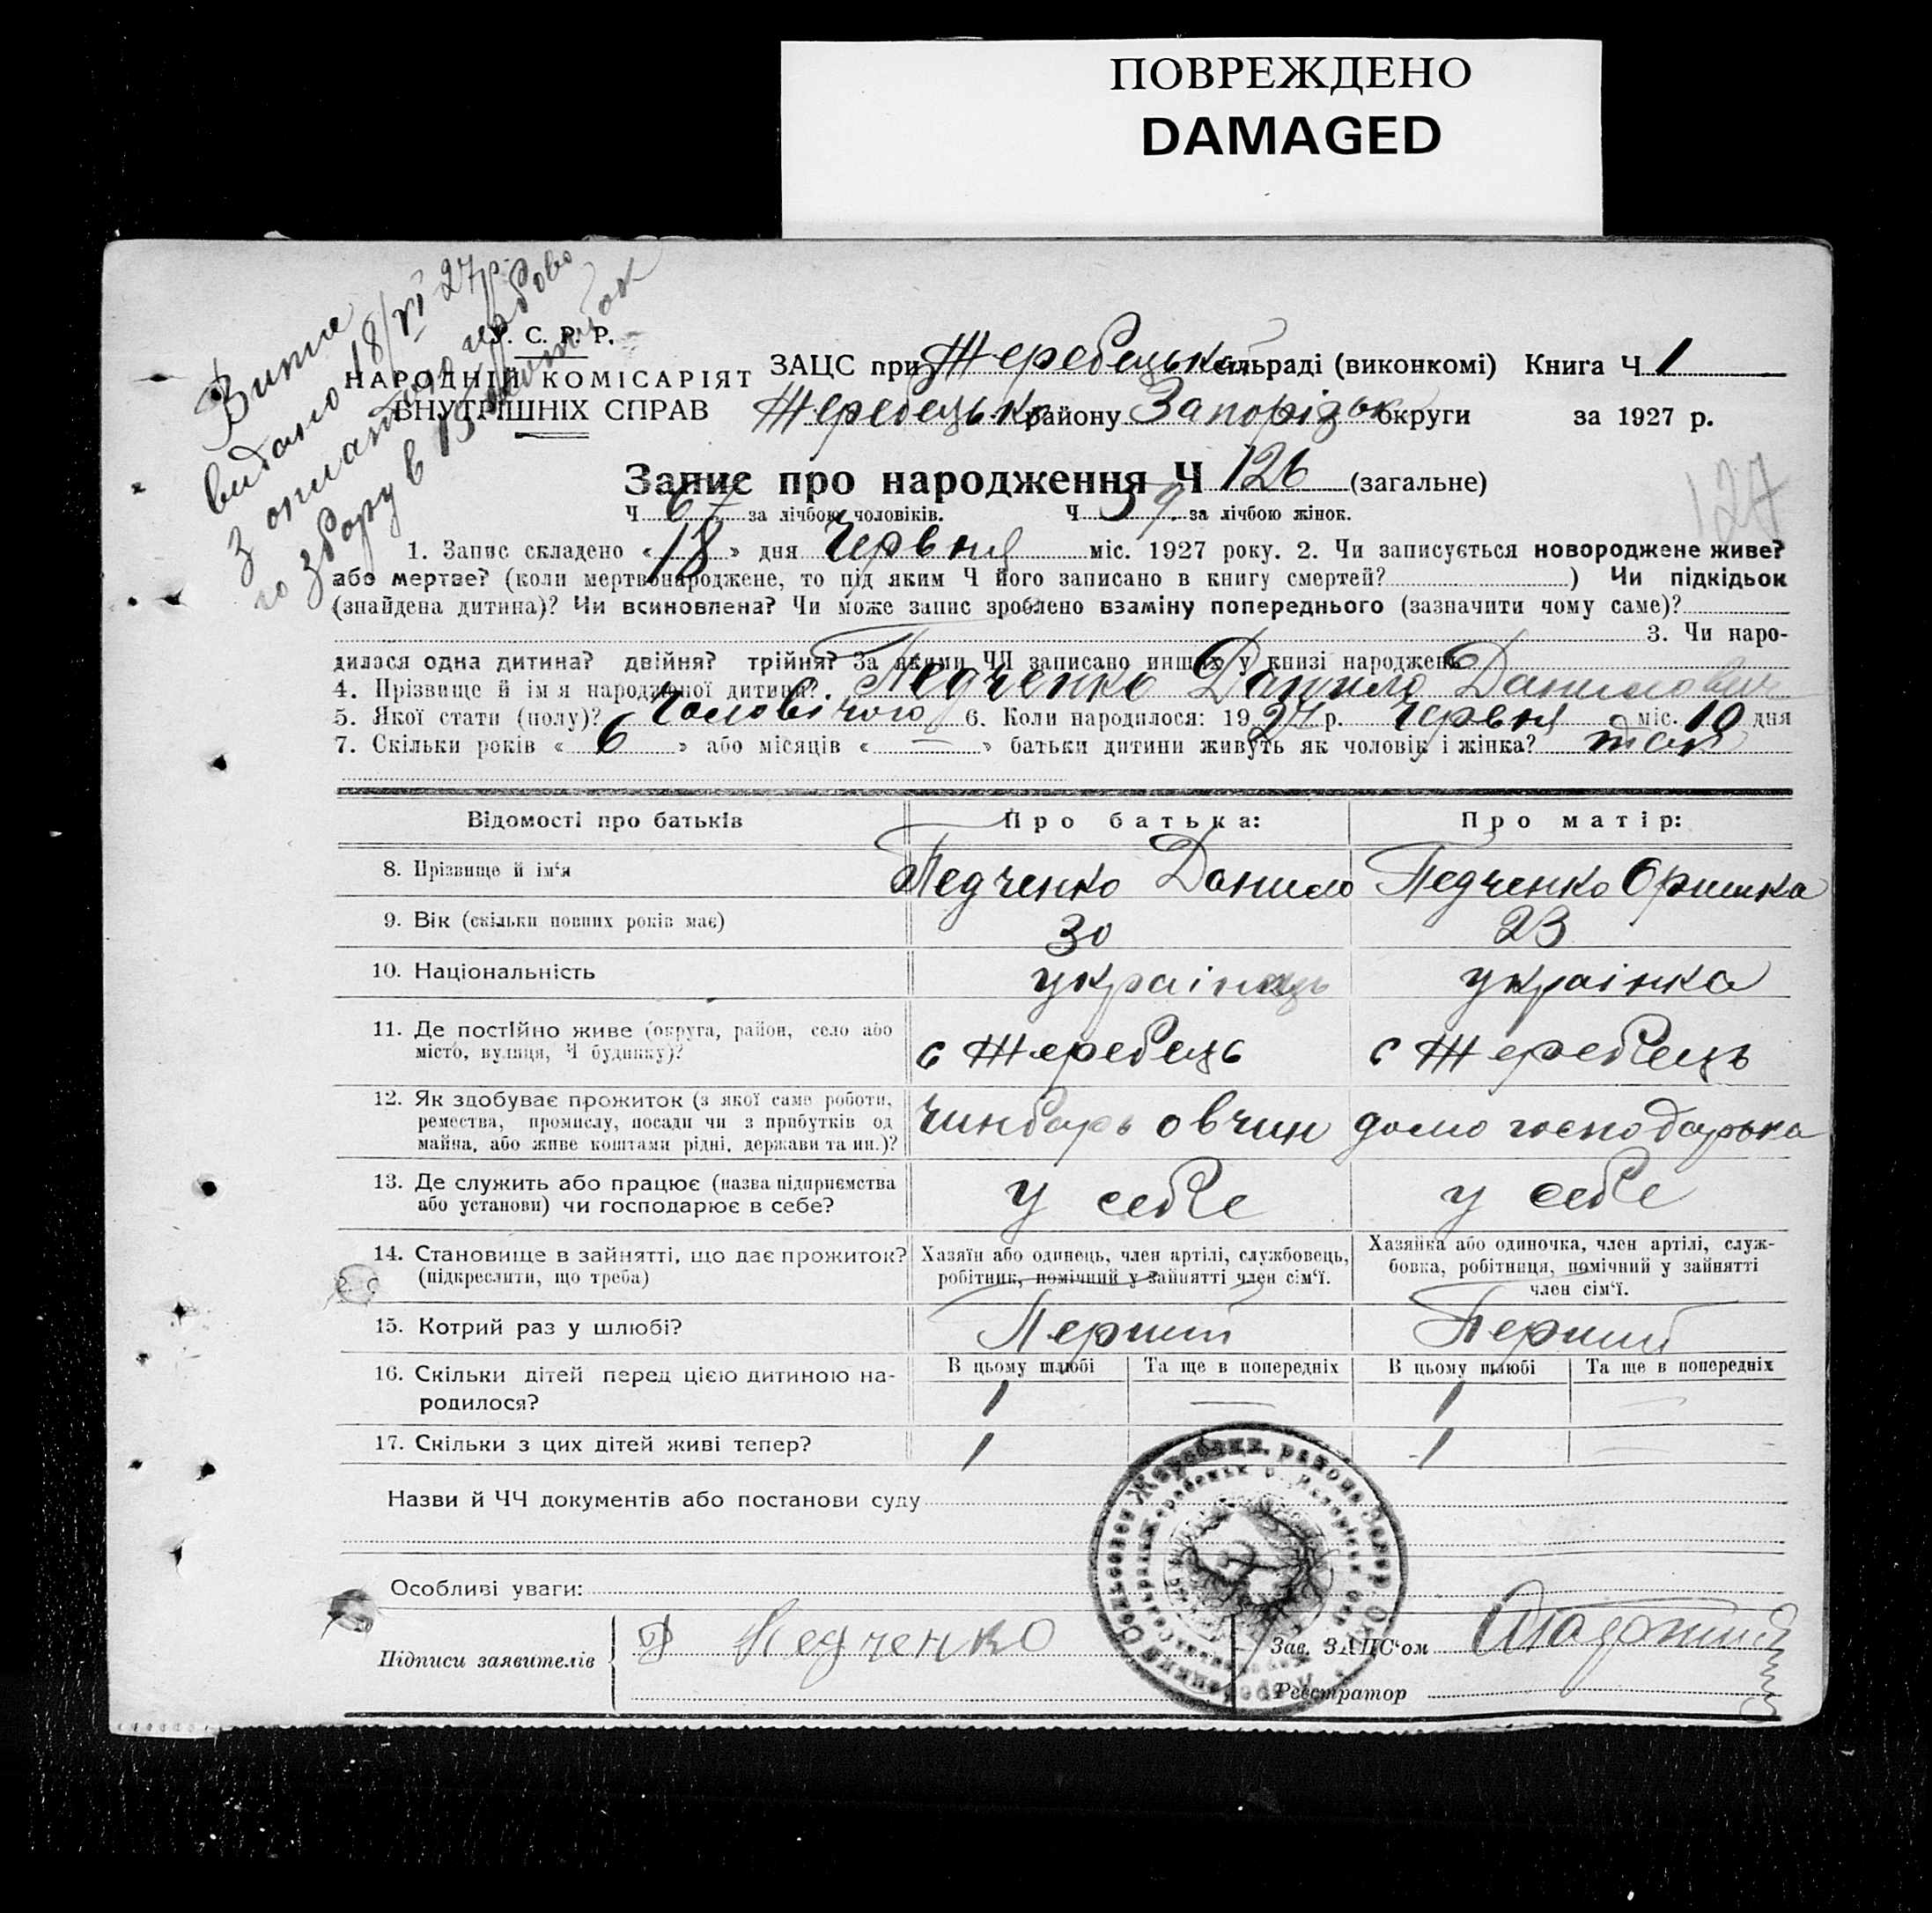 ПОВРЕЖДЕНО
DAMAGED
Витяг
видано 18/VI 27 р.
з оплатою гербово
го збору в 15 копійок
У. С. Р. Р.
НАРОДНІЙ КОМІСАРІЯТ
ВНУТРІШНІХ СПРАВ
ЗАЦС при Жеребецькій сільраді (виконкомі) Книга Ч 1
Жеребецьк району Запорізьк округи за 1927 р.
Запис про народження Ч 126 (загальне)
127
Ч 67 за лічбою чоловіків. Ч 59 за лічбою жінок.
1. Запис складено « 18 » дня Червня міс. 1927 року. 2. Чи записується новороджене живе?
або мертве? (коли мертвонароджене, то під яким Ч його записано в книгу смертей? ) Чи підкідьок
(знайдена дитина)? Чи всиновлена? Чи може запис зроблено взаміну попереднього (зазначити чому саме)?
3. Чи наро-
дилася одна дитина? двійня? трійня? За якими ЧЧ записано инших у книзі народжень
4. Прізвище й ім'я народженої дитини? Педченко Данило Данилович
5. Якої стати (полу)? Чоловічого 6. Коли народилося: 1927 р. Червня міс. 10 дня
7. Скільки років « 6 » або місяців « — » батьки дитини живуть як чоловік і жінка? так
Відомості про батьків Про батька: Про матір:
8. Прізвище й ім'я Педченко Данило Педченко Оришка
9. Вік (скільки повних років має) 30 23
10. Національність українець українка
11. Де постійно живе (округа, район, село або
місто, вулиця, Ч будинку)? с Жеребець с Жеребець
12. Як здобуває прожиток (з якої саме роботи,
ремества, промислу, посади чи з прибутків од
майна, або живе коштами рідні, держави та ин.)? чинбарь овчин домогосподарька
13. Де служить або працює (назва підприємства
або установи) чи господарює в себе? у себе у себе
14. Становище в зайнятті, що дає прожиток?
(підкреслити, що треба)
Хазяїн або одинець, член артілі, службовець,
робітник, помічний у зайнятті член сім'ї.
Хазяйка або одиночка, член артілі, служ-
бовка, робітниця, помічний у зайнятті
член сім'ї.
15. Котрий раз у шлюбі? Перший Перший
16. Скільки дітей перед цією дитиною на-
родилося?
В цьому шлюбі Та ще в попередніх В цьому шлюбі Та ще в попередніх
1 — 1 —
17. Скільки з цих дітей живі тепер? 1 1 —
Назви й ЧЧ документів або постанови суду
Особливі уваги:
Підписи заявителів Д Педченко
Зав. ЗАЦС'ом
Реєстратор